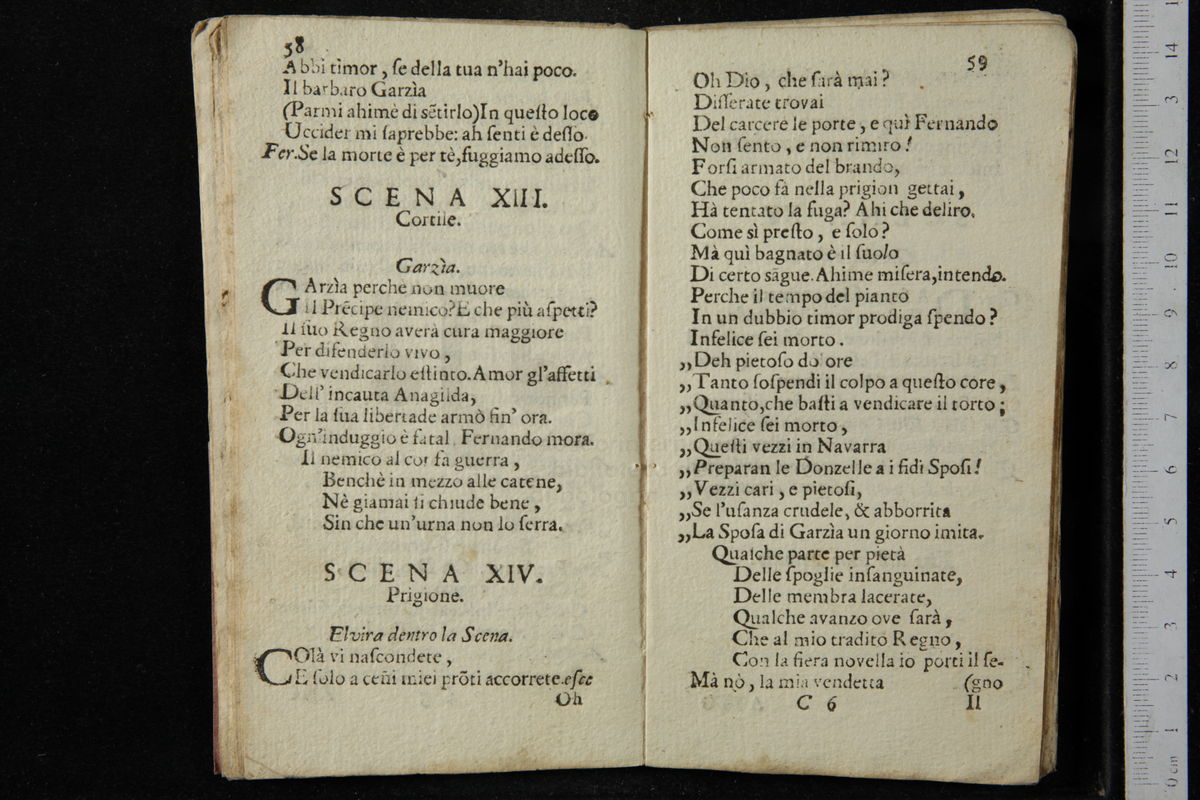 58
Abbi timor, ſe della tua n'hai poco.
Il barbaro Garzìa
(Parmi ahimè di sẽtirlo)In queſto loco
Uccider mi ſaprebbe: ah ſenti è deſſo.
Fer.Se la morte è per tè,fuggiamo adeſſo.
SCENA XIII.
Cortile.
Garzìa.
GArzìa perche non muore
il Prẽcipe nemico?E che più aſpetti?
Il ſuo Regno averà cura maggiore
Per difenderlo vivo,
Che vendicarlo eſtinto. Amor gl'affetti
Dell' incauta Anagilda,
Per la ſua libertade armò fin' ora.
Ogn'induggio è fatal, Fernando mora.
Il nemico al cor fa guerra,
Benchè in mezzo alle catene,
Nè giamai ſi chiude bene,
Sin che un'urna non lo ſerra.
SCENA XIV.
Prigione.
Elvira dentro la Scena.
COlà vi naſcondete,
E ſolo a ceñi miei prõti accorrete.eſce
Oh
59
Oh Dio, che ſarà mai?
Diſſerate trovai
Del carcere le porte, e quì Fernando
Non ſento, e non rimiro!
Forſi armato del brando,
Che poco fà nella prigion gettai,
Hà tentato la fuga? Ahi che deliro.
Come sì preſto, e ſolo?
Mà quì bagnato è il ſuolo
Di certo sãgue. Ahime miſera,intendo.
Perche il tempo del pianto
In un dubbio timor prodiga ſpendo?
Infelice ſei morto.
„Deh pietoſo do ore
„Tanto ſoſpendi il colpo a queſto core,
„Quanto,che baſti a vendicare il torto;
„Infelice ſei morto,
„Queſti vezzi in Navarra
„Preparan le Donzelle a i fidi Spoſi!
„Vezzi cari, e pietoſi,
„Se l'uſanza crudele, & abborrita
„La Spoſa di Garzìa un giorno imita.
Qualche parte per pietà
Delle ſpoglie inſanguinate,
Delle membra lacerate,
Qualche avanzo ove ſarà,
Che al mio tradito Regno,
Con la fiera novella io porti il ſe-
Mà nò, la mia vendetta (gno
C 6 Il
0 cm 1 2 3 4 5 6 7 8 9 10 11 12 3 14